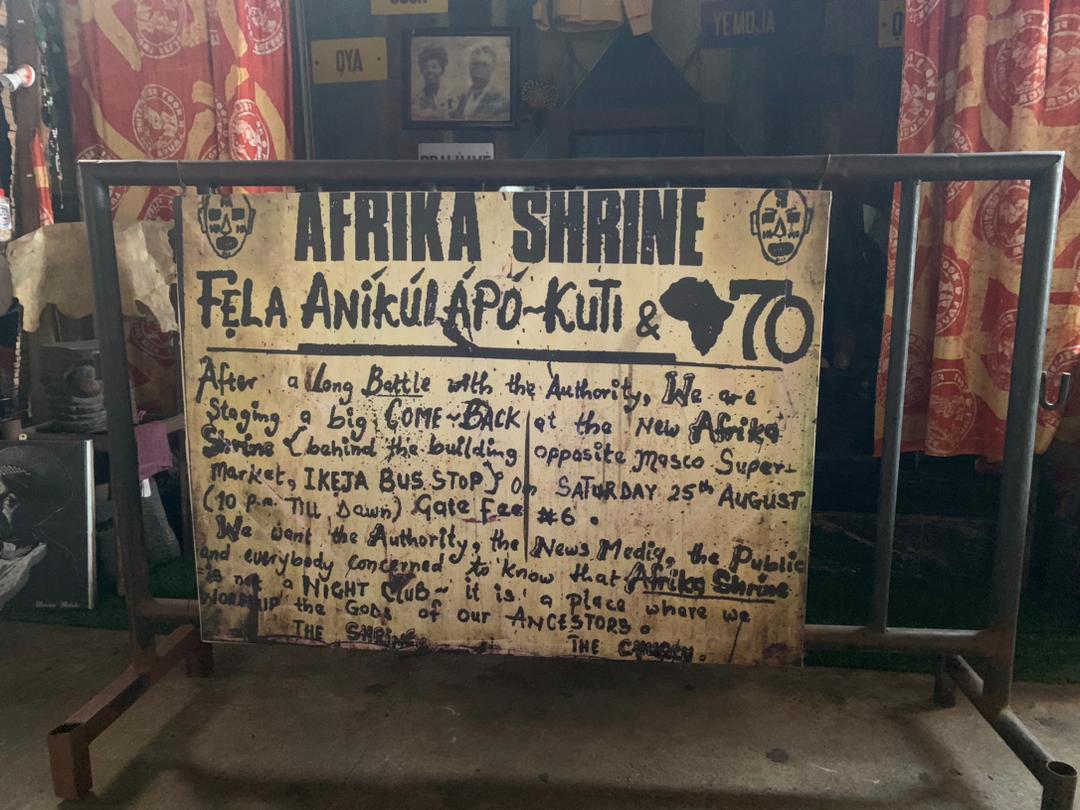 ỌYA
YEMOJA
AFRIKA SHRINE
FẸLA ANÍKÚLÁPÓ~KUTI & 70
After a Long Battle with the Authority, We are
Staging a big COME~BACK at the New Afrika
Shrine (behind the building opposite Masco Super-
market, IKEJA BUS STOP) On SATURDAY 25th AUGUST
(10 p.m. TILL Dawn) Gate Fee ₦6.
We want the Authority, the News Media, the Public
and everybody concerned to know that Afrika Shrine
is not a NIGHT CLUB~ it is a place where we
WORSHIP the GODS of our ANCESTORS.
THE SHRINE THE